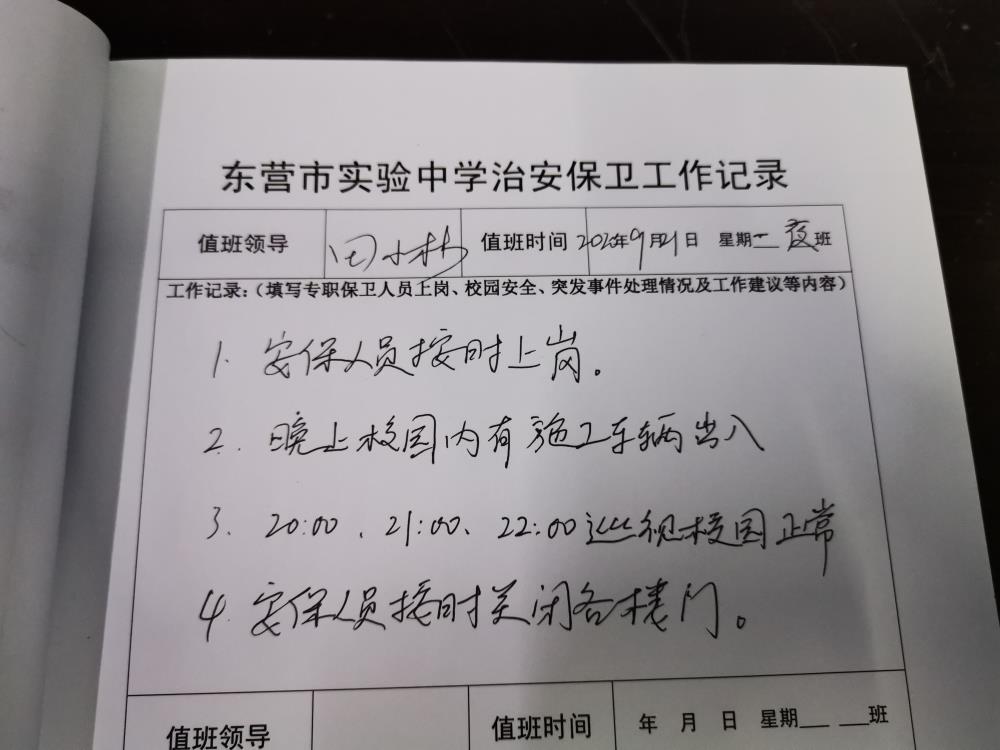 东营市实验中学治安保卫工作记录
值班领导 田小林 值班时间 2020年9月21日 星期一 夜班
工作记录:(填写专职保卫人员上岗、校园安全、突发事件处理情况及工作建议等内容)
1. 安保人员按时上岗。
2. 晚上校园内有施工车辆出入
3、20:00、21:00、22:00巡视校园正常
4. 安保人员按时关闭各楼门。
值班领导 值班时间 年 月 日 星期___ ___班